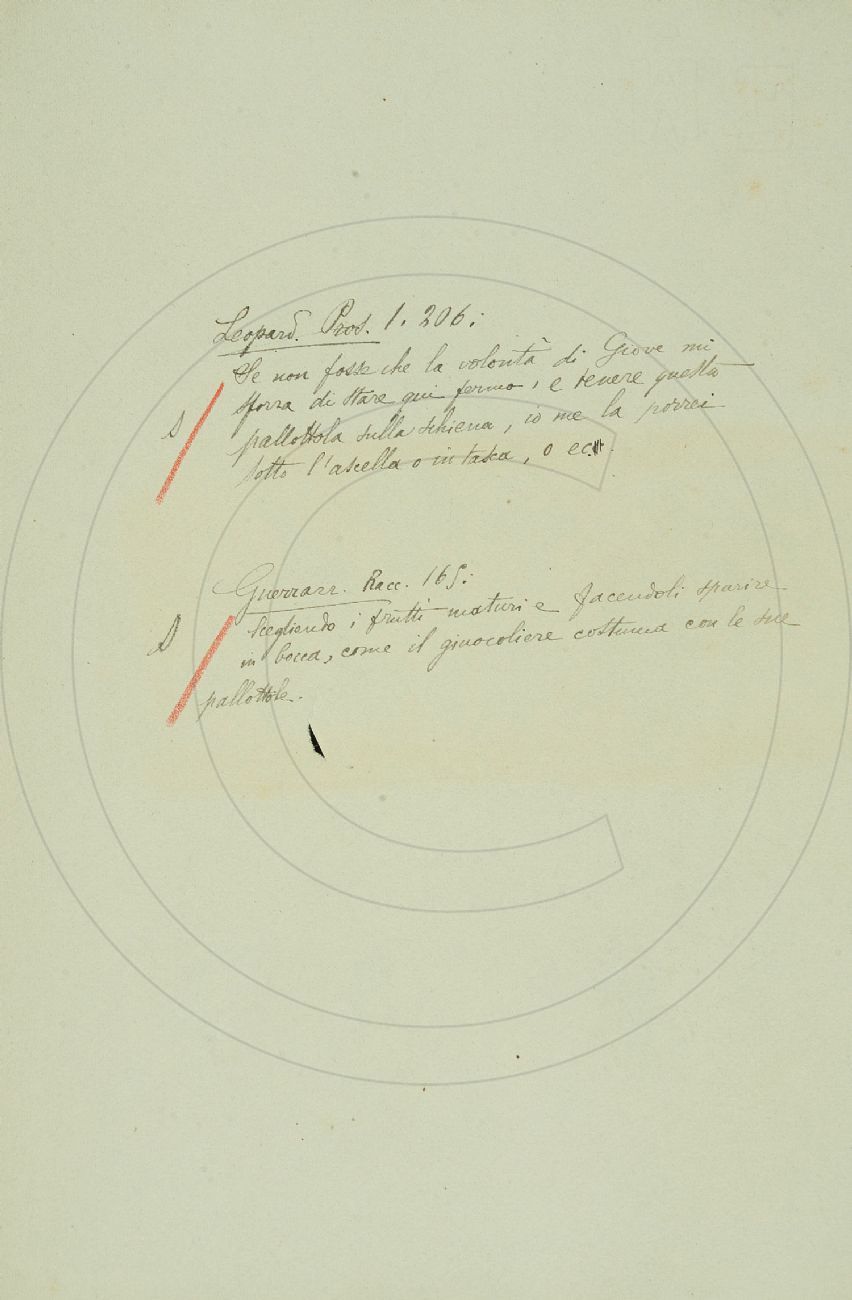 Leopard. Pros. 1. 206:
Se non fosse che la volontà di Giove mi
sforza di stare qui fermo, e tenere questa
pallottola sulla schiena, io me la porrei
sotto l'ascella o in tasca, o ec.
Guerrazz. Racc. 165:
Scegliendo i frutti maturi e facendoli sparire
in bocca, come il giuocoliere costuma con le sue
pallottole.